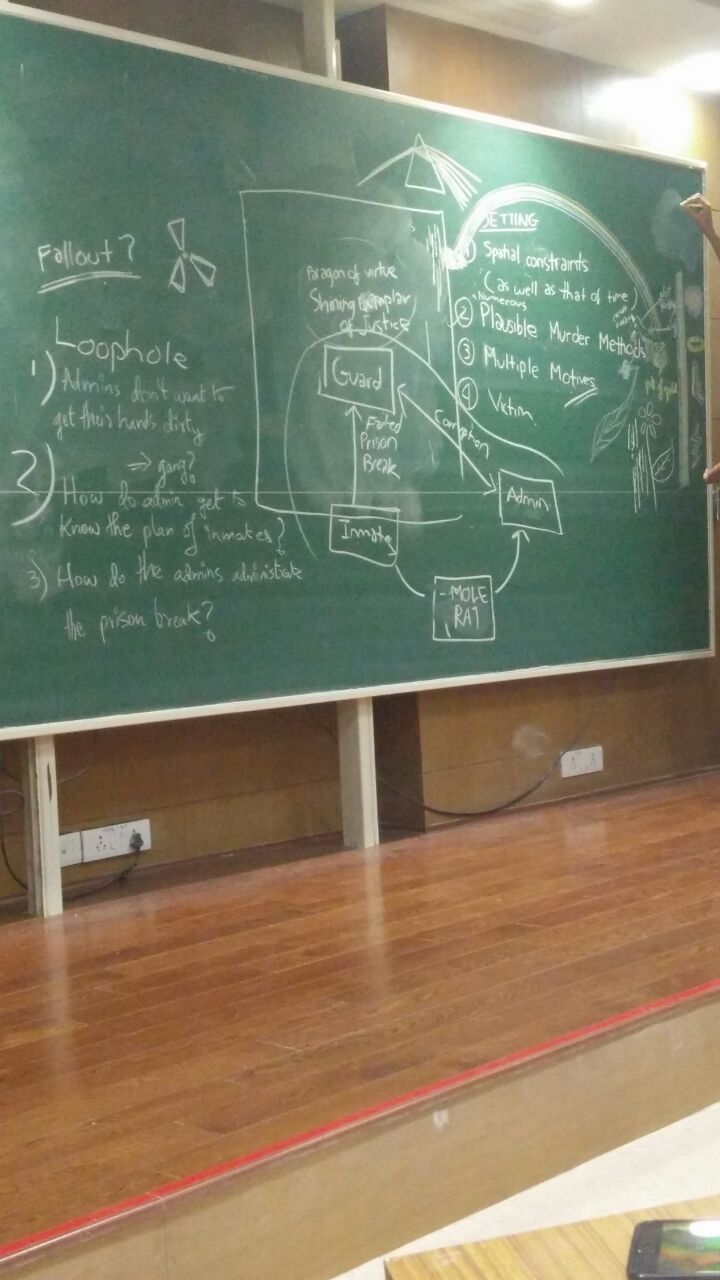 Fallout?
Loophole
1) Admins don't want to
get their hands dirty
⇒ gang?
2) How do admin get to
know the plan of inmates?
3) How do the admins administrate
the prison break?
Paragon of virtue
Shining Exemplar
of Justice
Guard
Failed
Prison
Break
Corruption
Inmates
Admin
MOLE
RAT
SETTING
① Spatial constraints
(as well as that of time)
Numerous
② Plausible Murder Methods
③ Multiple Motives
④ Victim
pot of gold